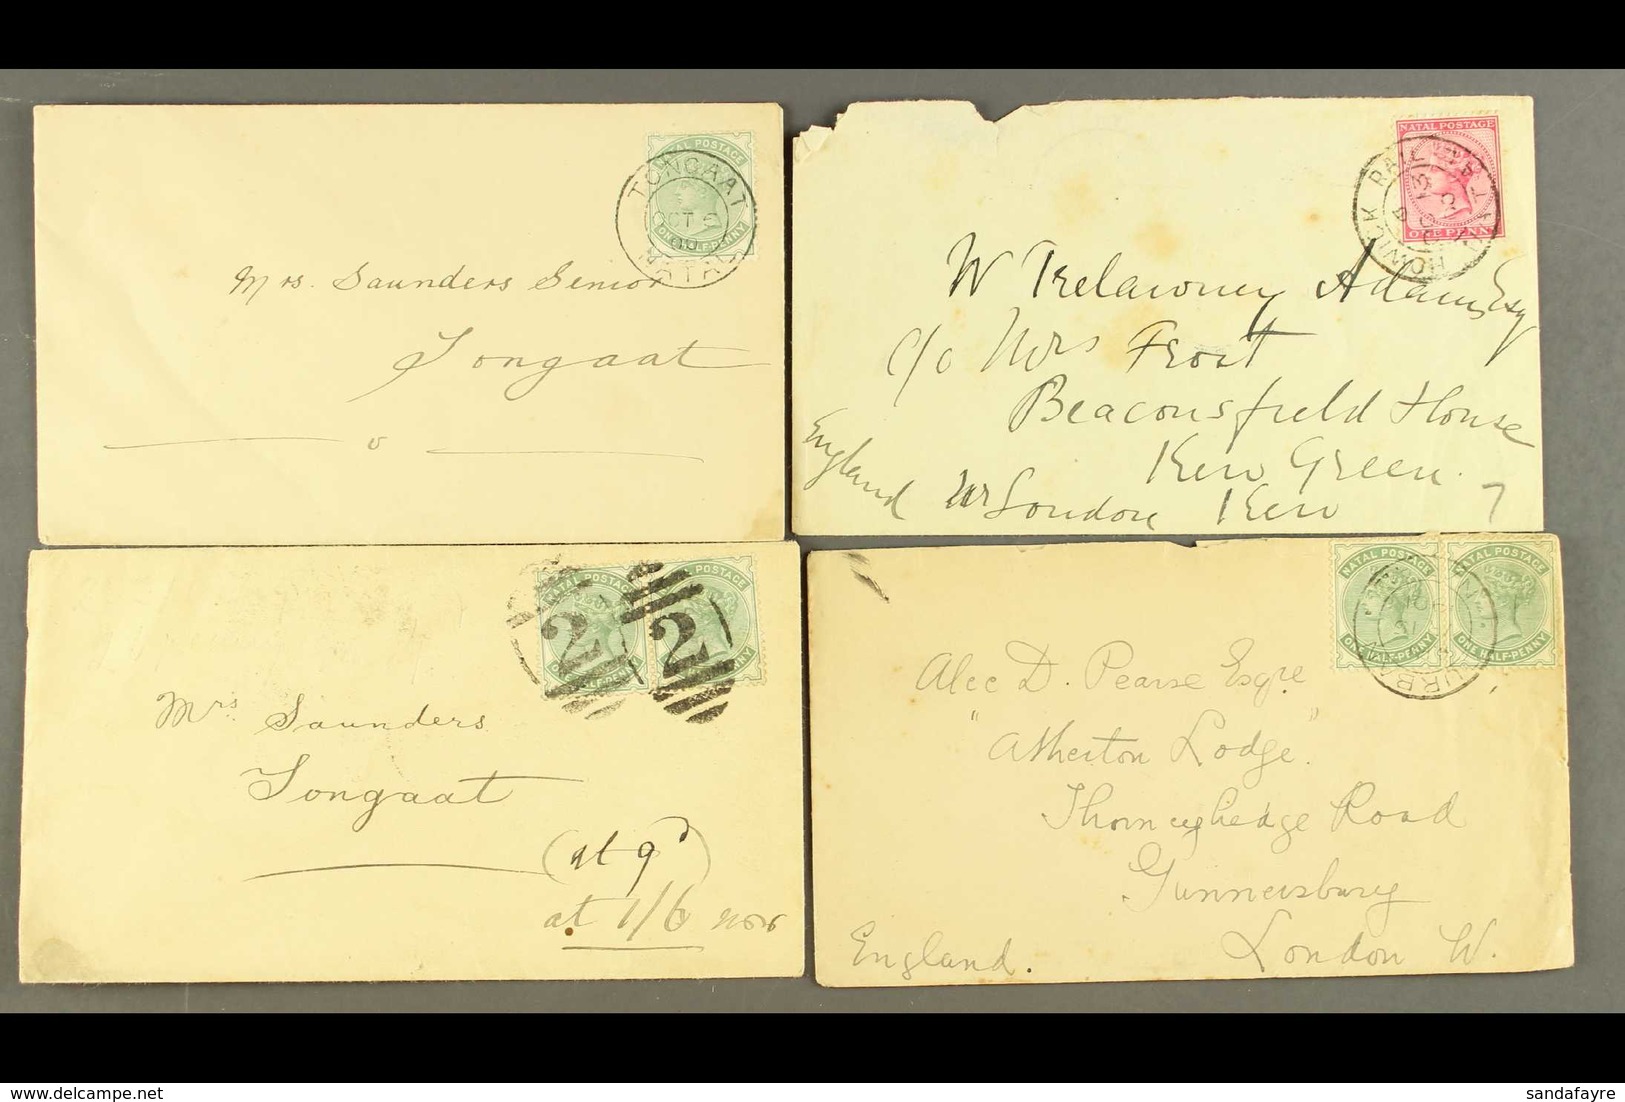 NATAL POSTAGE
TONGAAT
OCT 6
NATAL
ONE HALF-PENNY
Mrs. Saunders Senior
Tongaat
NATAL POSTAGE
HOWICK RAIL
ONE PENNY
W Trelawney Adams Esq
c/o Mrs Frost
Beaconsfield House
Kew Green
England Nr London Kew 7
NATAL POSTAGE NATAL POSTAGE
2 2
ONE HALF-PENNY
Mrs Saunders
Tongaat
(at 9d)
at 1/6 now
NATAL POSTAGE NATAL POSTAGE
ONE HALF-PENNY ONE HALF-PENNY
Alec D. Pearse Esqre
"Atherton Lodge"
Thorneyhedge Road
Gunnersbury
England. London W.
sandafayre